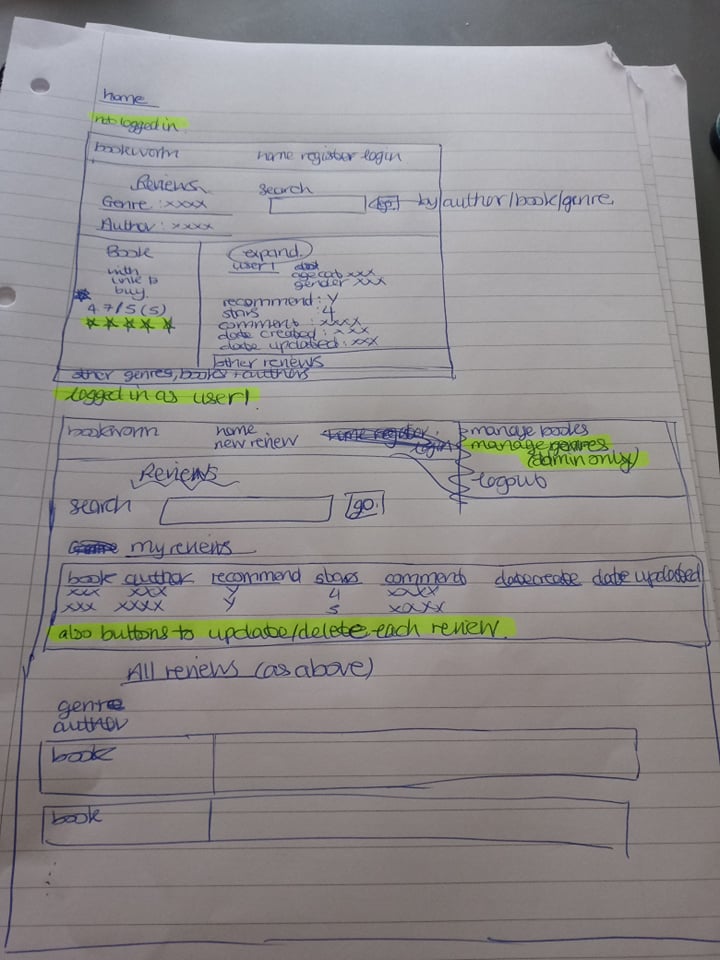 home
not logged in
bookworm home register login
Reviews search
Genre : xxxx go. by author/book/genre
Author : xxxx
Book expand.
user 1
with agecat xxx
link to gender xxx
buy.
recommend : Y
4.7/5 (5) stars : 4
comment : xxxx
date created : xxx
date updated : xxx
other reviews
other genres, books + authors
logged in as user1.
bookworm home home register manage books
new review login manage genres
(admin only)
Reviews logout
search go.
my reviews
book author recommend stars comment datecreate date updated
xxx xxx Y 4 xxxx
xxx xxxx Y 5 xxxx
also buttons to update/delete each review.
All reviews (as above)
genre
author
book
book